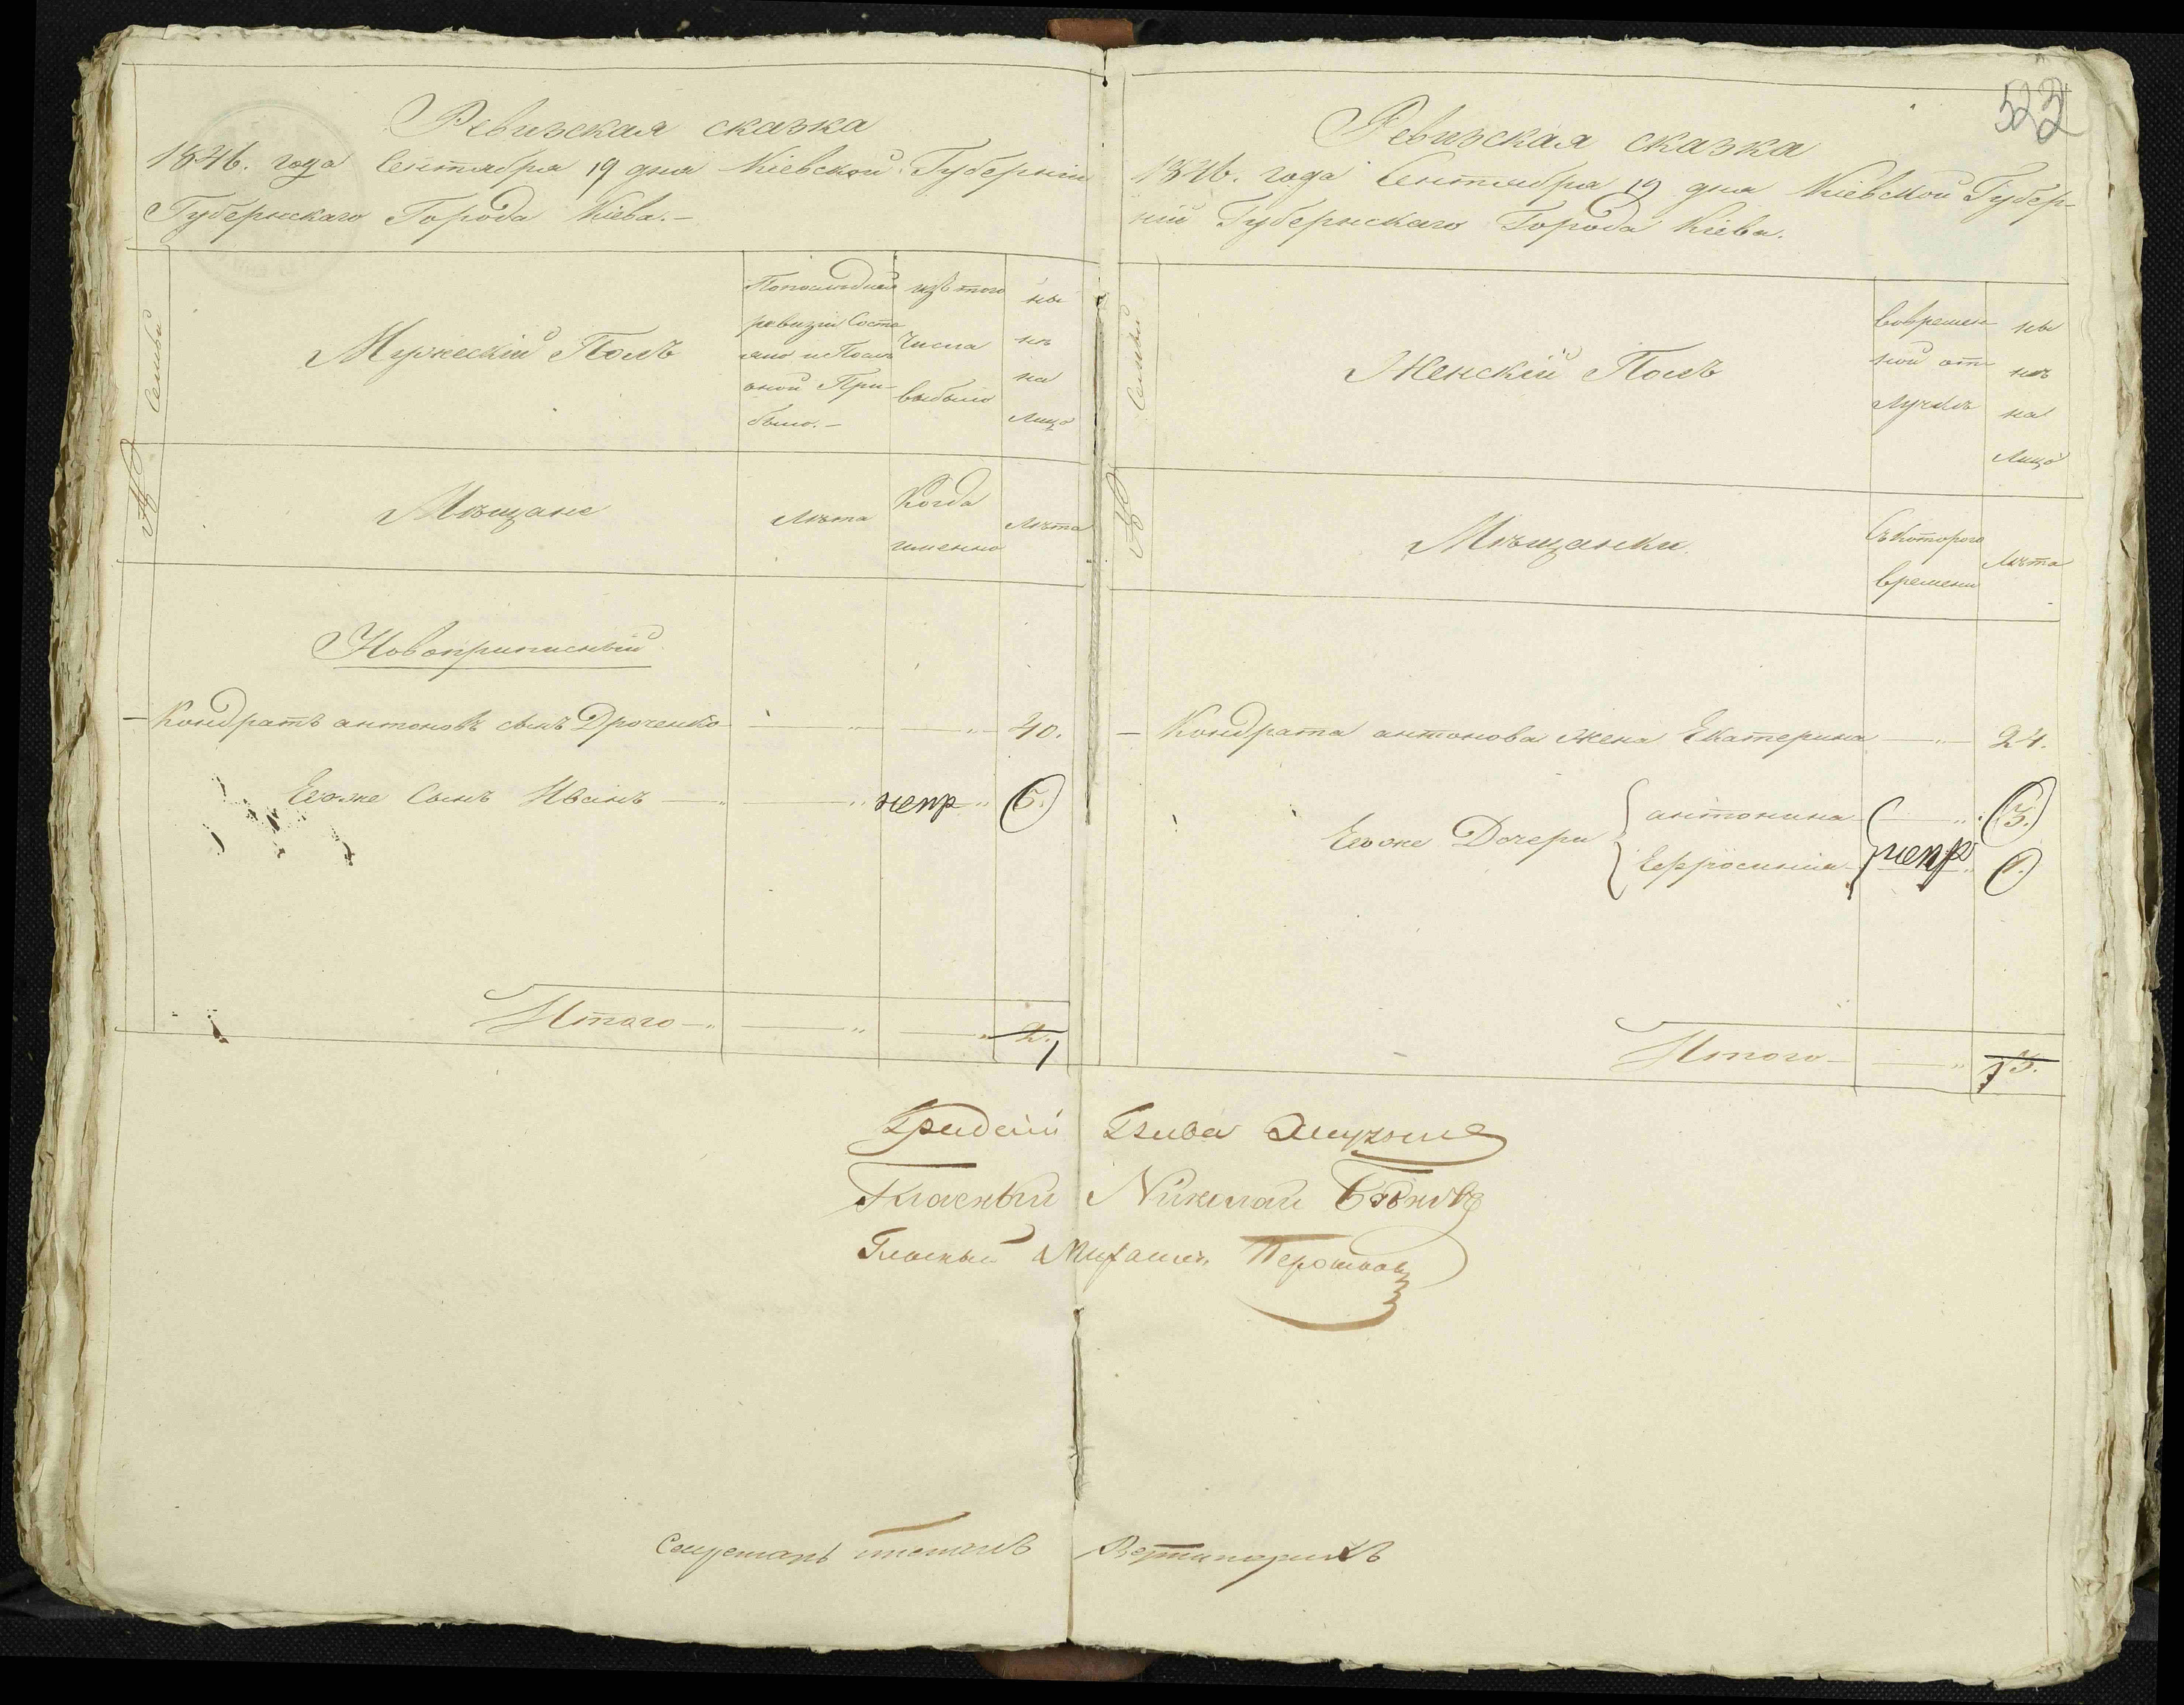 523
Ревизская сказка
1846. года Сентября 19 дня Кіевской Губерніи
Губернскаго Города Кіева.-
№ Семьи
Мужескій Полъ
По последней
ревизіи Состо
яло и Посл
оной При-
было.-
изъ того
Числа
выбыло
ны
нѣ
на
Лицо
Мѣщане
Лѣта
Когда
именно
Лѣта
Новоприписный
Кондратъ антоновъ сынъ Дроченко 40.
Егоже Сынъ Иванъ непр 6.
Итого 2. 1
Ревизская сказка
1846. года Сентября 19 дня Кіевской Губер-
ніи Губернскаго Города Кіева.
№ Семьи
Женскій Полъ
Вовремен
ной от
Лучкѣ
ны
нѣ
на
Лицо
Мѣщанки
Съ Котораго
времени
Лѣта
Кондрата антонова жена Екатерина 24.
Егоже Дочери
антонина 3.
Ефросинія непр 1.
Итого 3. 1
Гласный Николай
Гласный Михаилъ